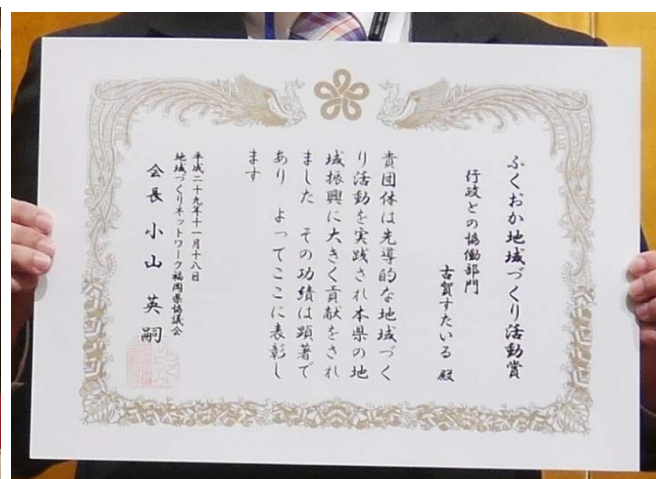 ふくおか地域づくり活動賞
行政との協働部門
古賀すたいる 殿
貴団体は先導的な地域づく
り活動を実践され本県の地
域振興に大きく貢献をされ
ました その功績は顕著で
あり よってここに表彰し
ます
平成二十九年十一月十八日
地域づくりネットワーク福岡県協議会
会長 小山英嗣